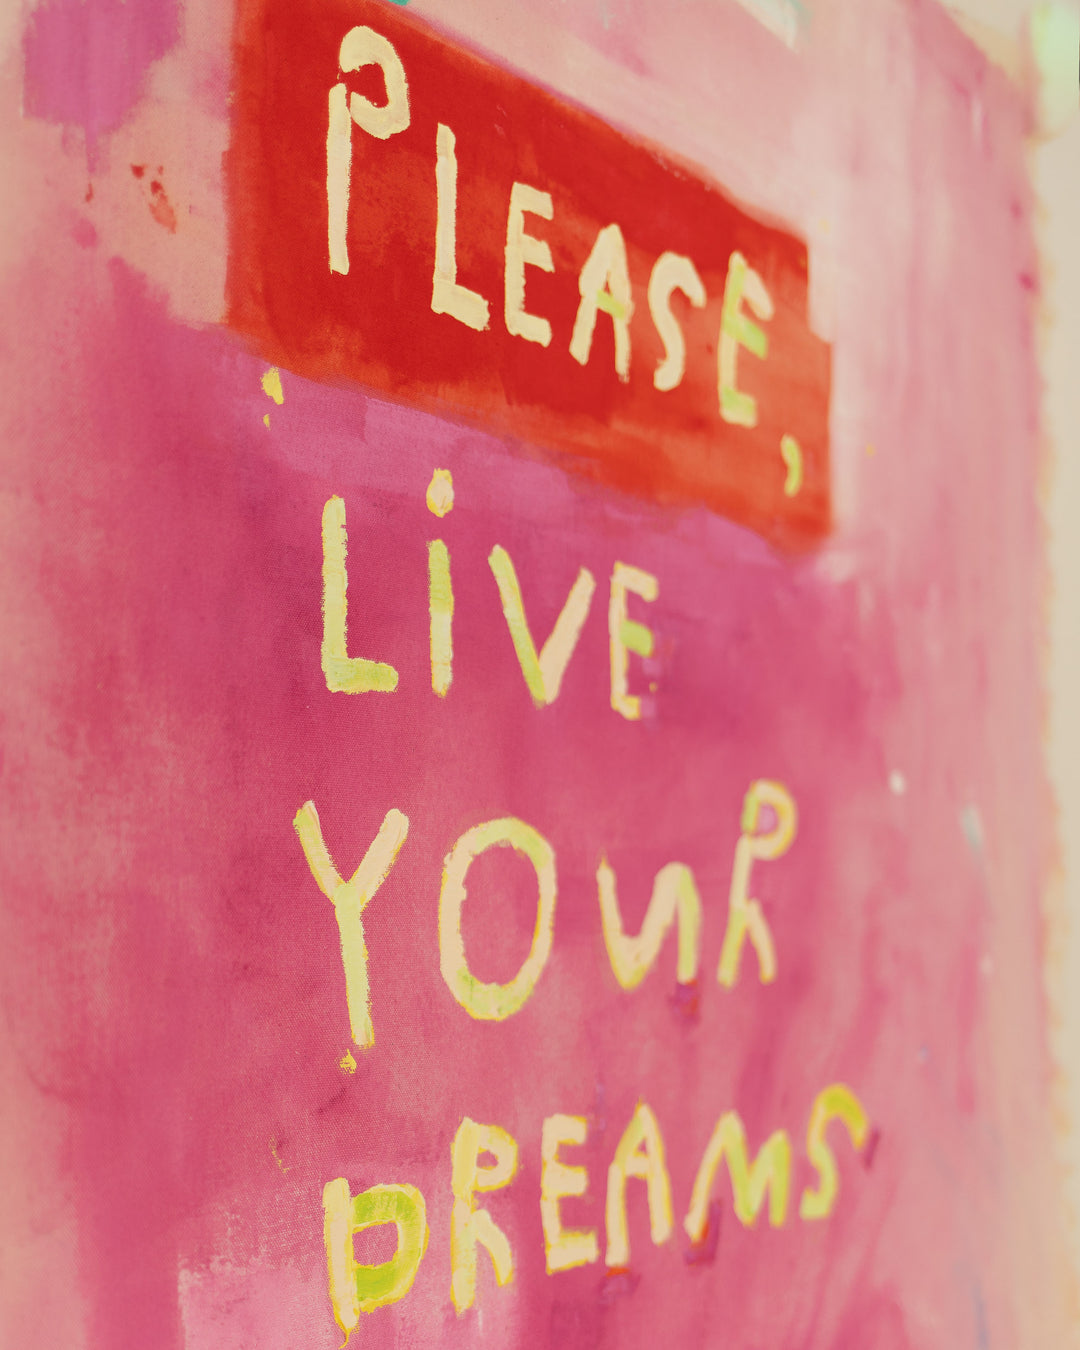 PLEASE,
LiVE
YOUR
DREAMS